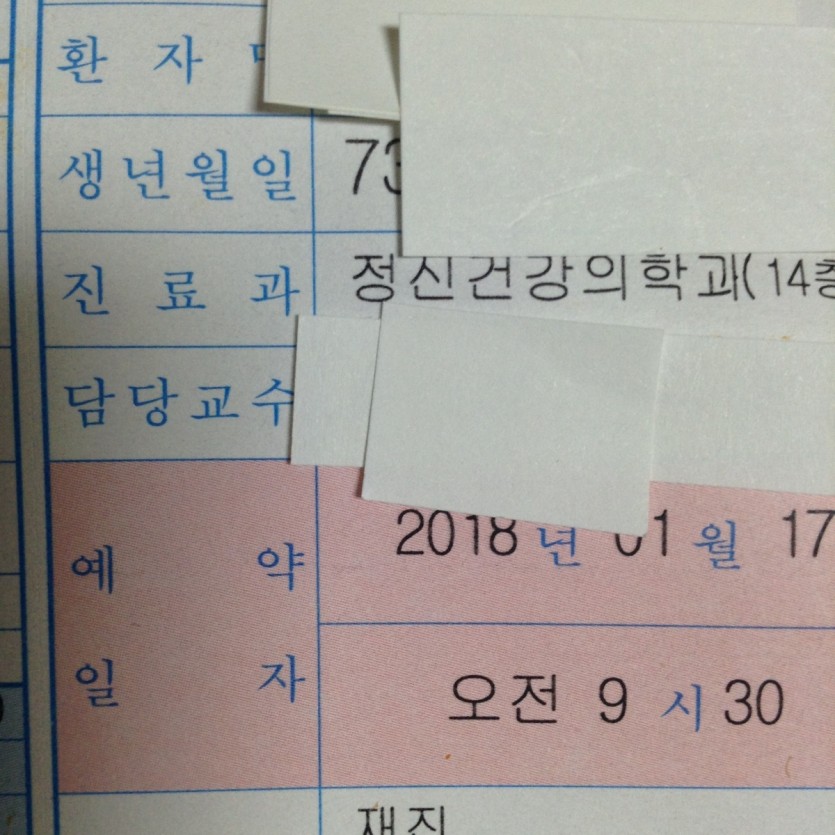 환 자
생년월일 73
진 료 과 정신건강의학과(14층
담당교수
예 약 2018 년 01 월 17
일 자 오전 9 시 30
재진